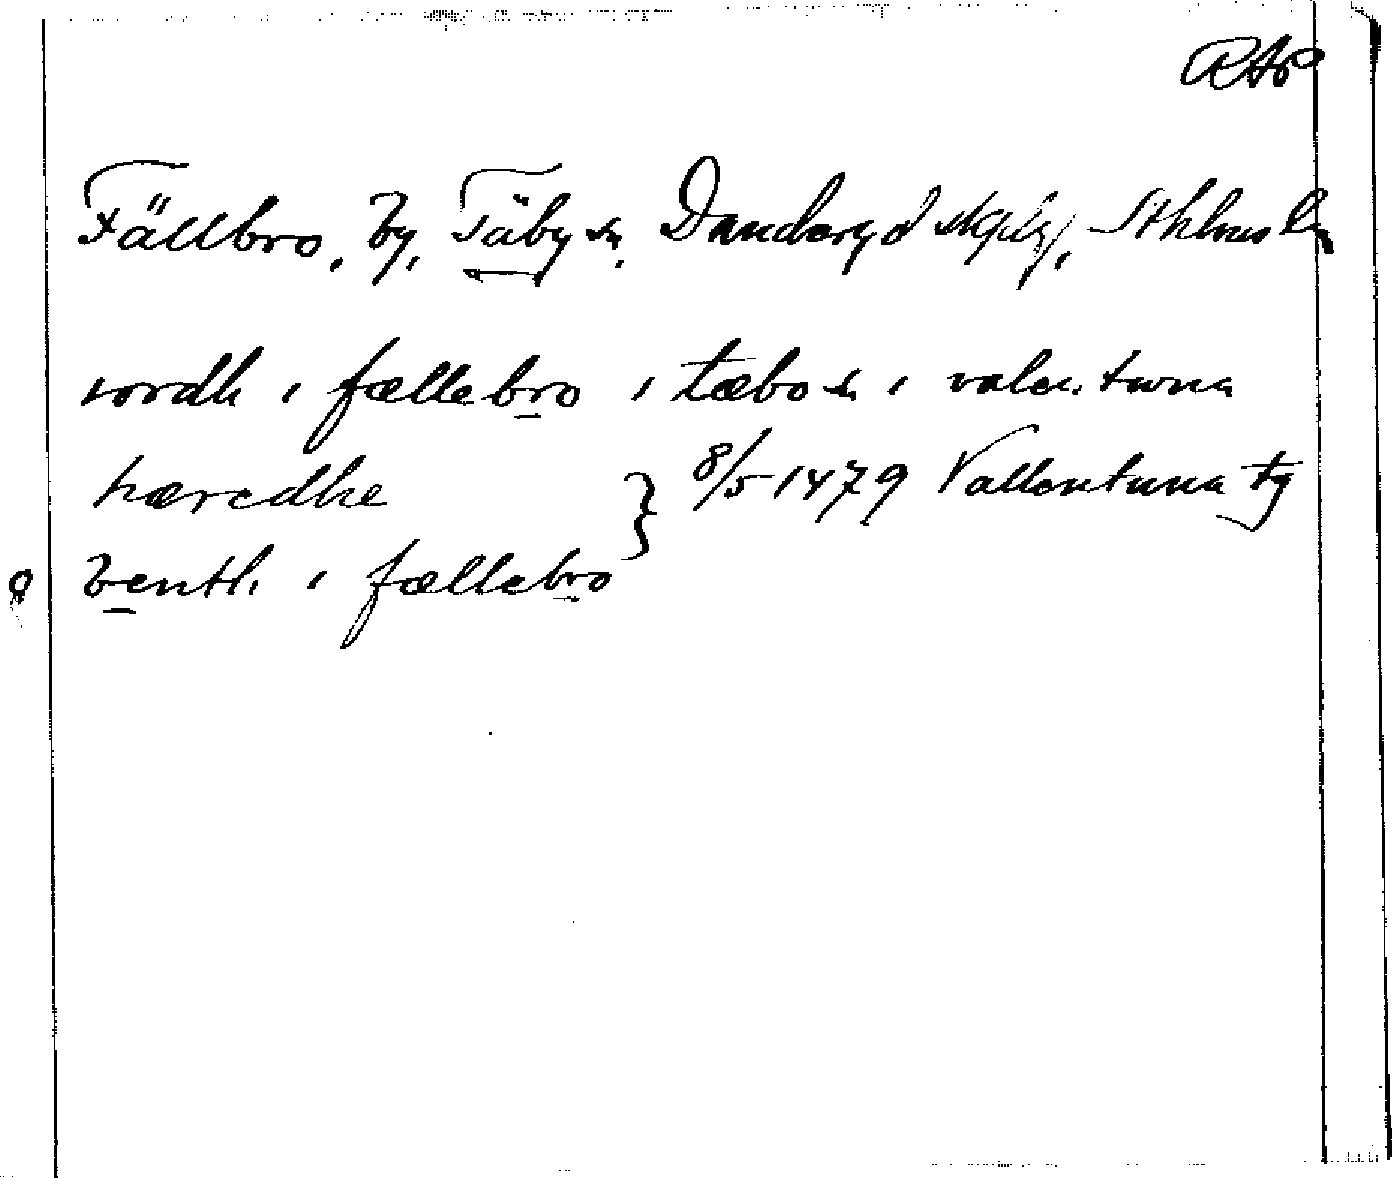 RAP
Fällbro, by, Täby sn, Danderyd skplg, Sthlms ln
iordh i fællebro i tæbo sn i valentuna
hæredhe } 8/5 1479 Vallentuna tg
benth i fællebro